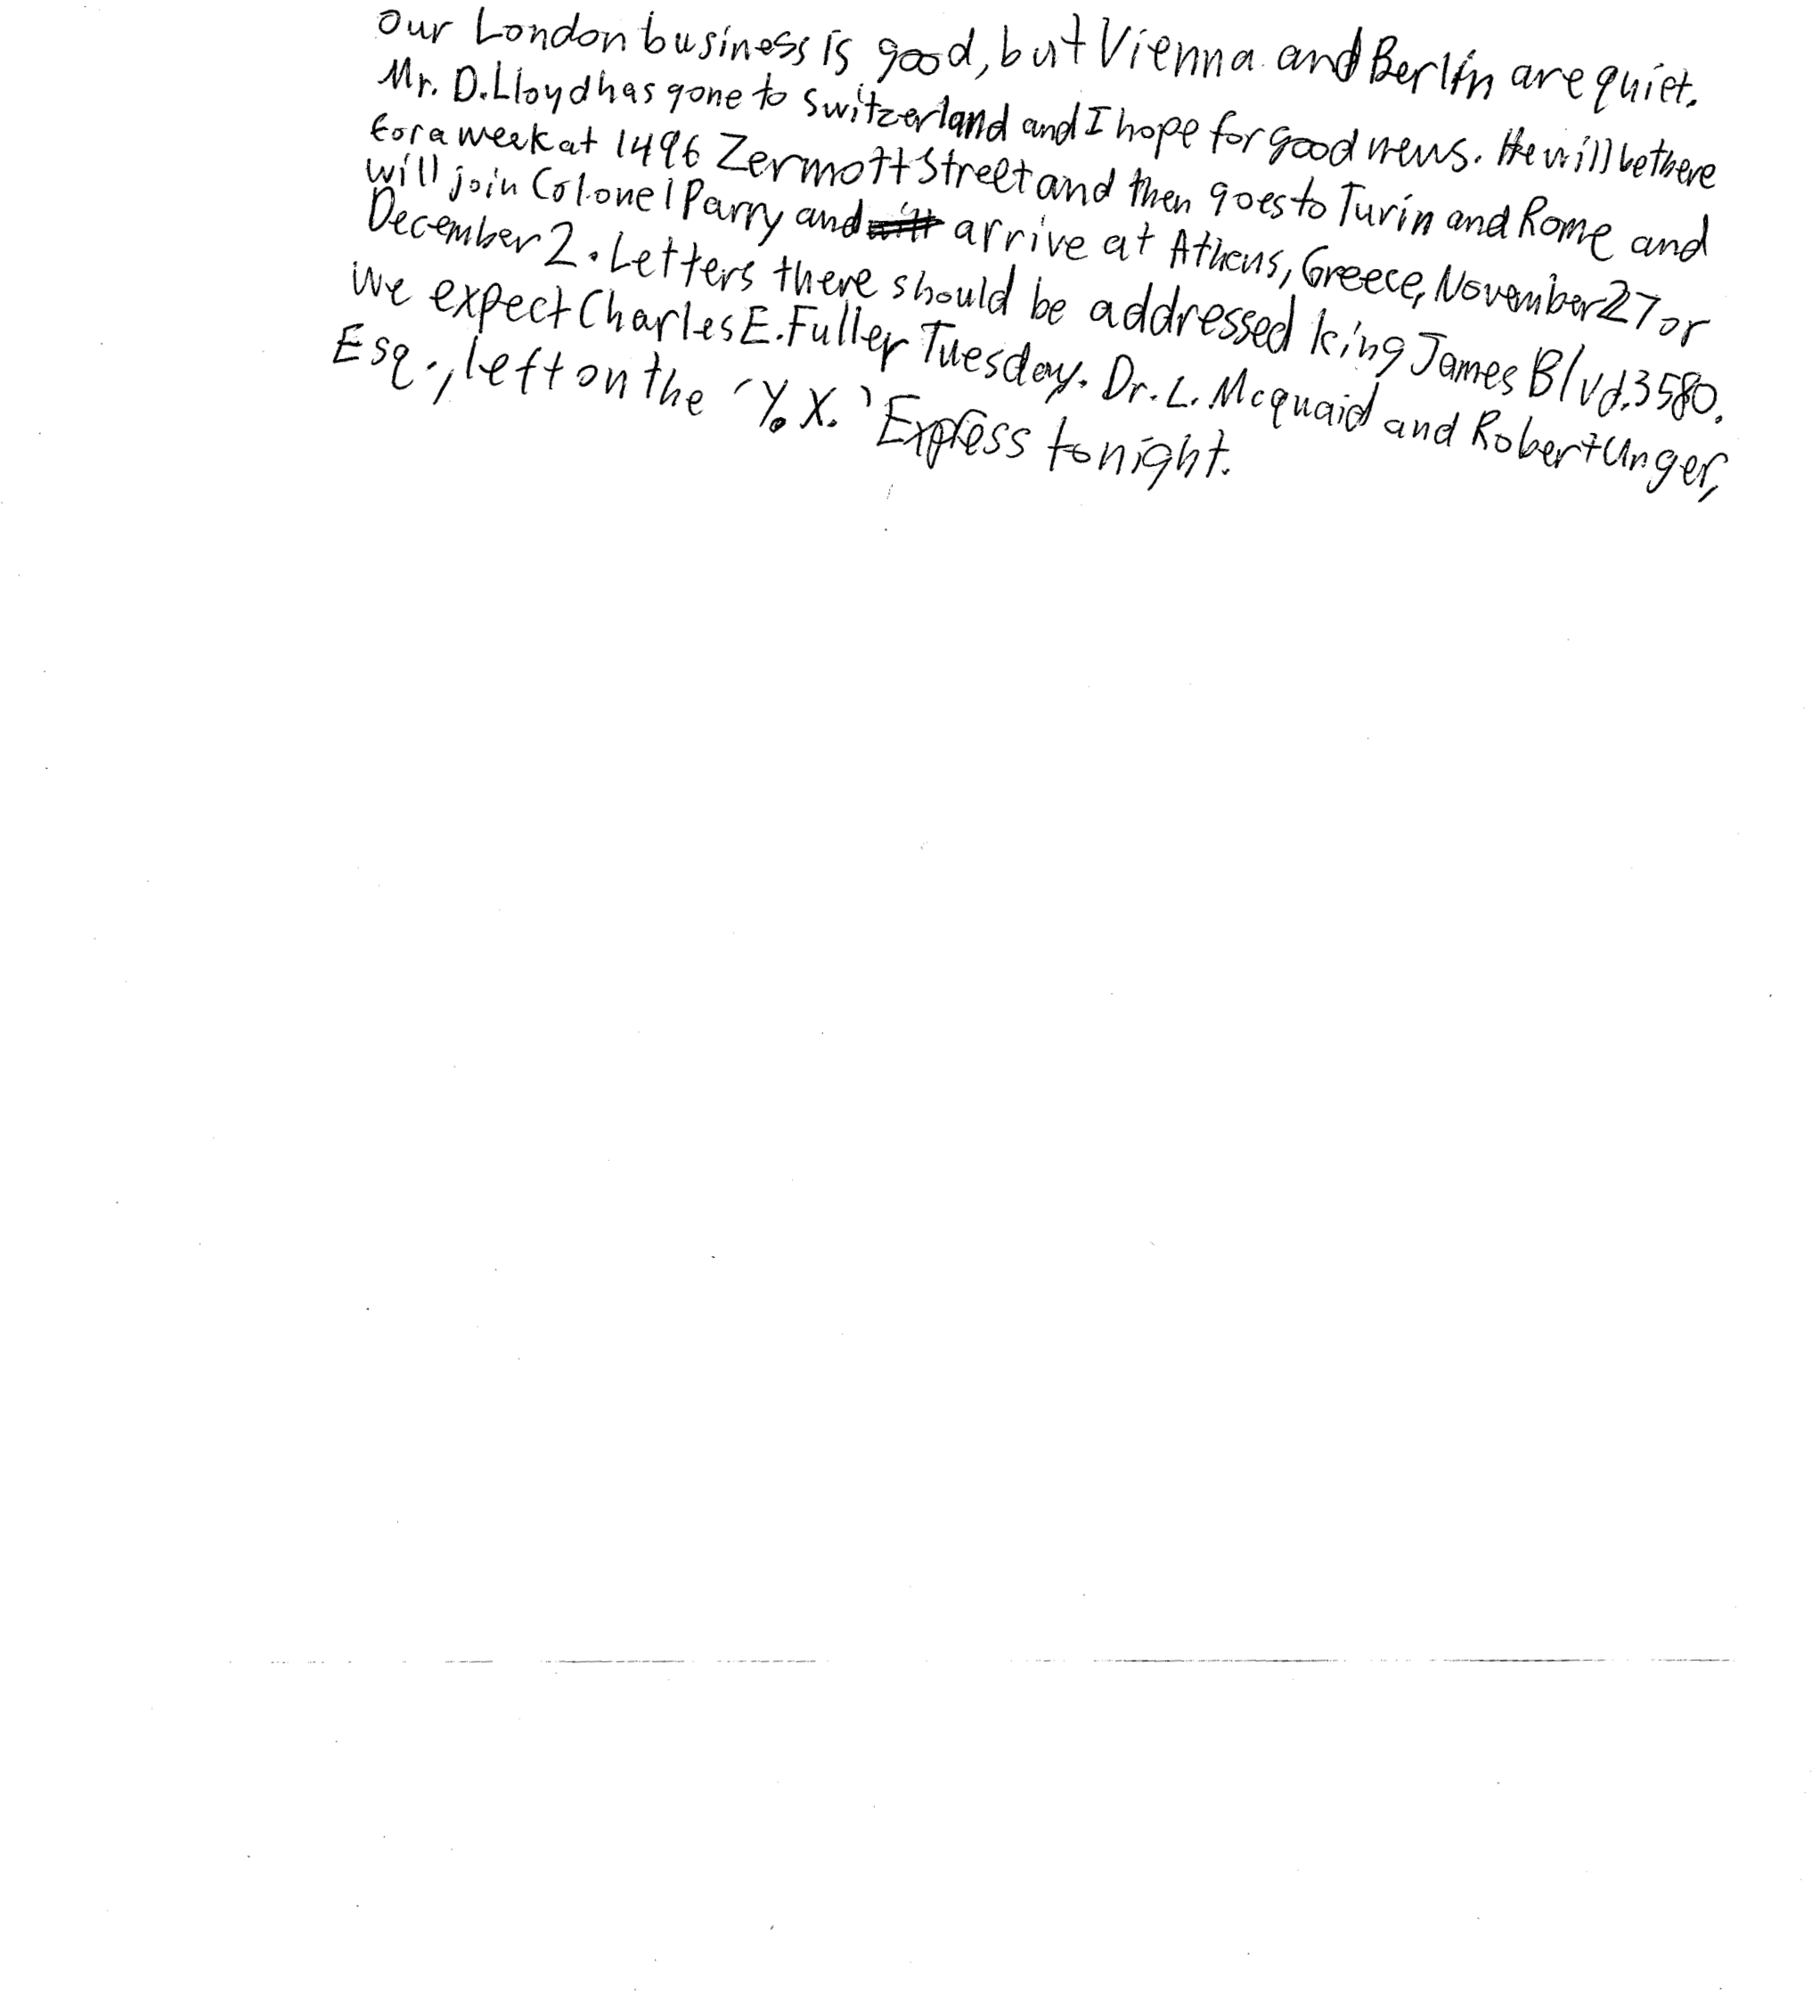 Our London business is good, but Vienna and Berlin are quiet.
Mr. D. Lloyd has gone to Switzerland and I hope for good news. He will be there
for a week at 1496 Zermott Street and then goes to Turin and Rome and
will join Colonel Parry and arrive at Athens, Greece, November 27 or
December 2. Letters there should be addressed king James Blvd. 3580.
We expect Charles E. Fuller Tuesday. Dr. L. Mcquaid and Robert Unger,
Esq., left on the 'Y. X.' Express tonight.